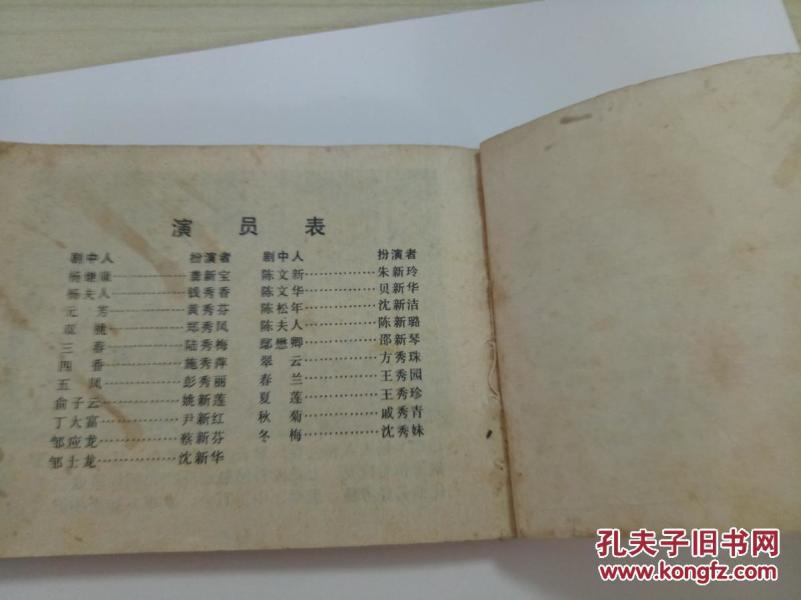 演 员 表
剧中人 扮演者 剧中人 扮演者
杨继 龚新宝 陈文新 朱新玲
杨夫人 钱秀香 陈文华 贝新华
元 芳 黄秀芬 陈松年 沈新洁
郑秀凤 陈夫人 陈新璐
三 春 陆秀梅 鄢懋卿 邵新琴
四 香 施秀萍 翠 云 方秀珠
五 凤 彭秀丽 春 兰 王秀园
俞子云 姚新莲 夏 莲 王秀珍
丁大富 尹新红 秋 菊 戚秀青
邹应龙 蔡新芬 冬 梅 沈秀妹
邹士龙 沈新华
孔夫子旧书网
www.kongfz.com